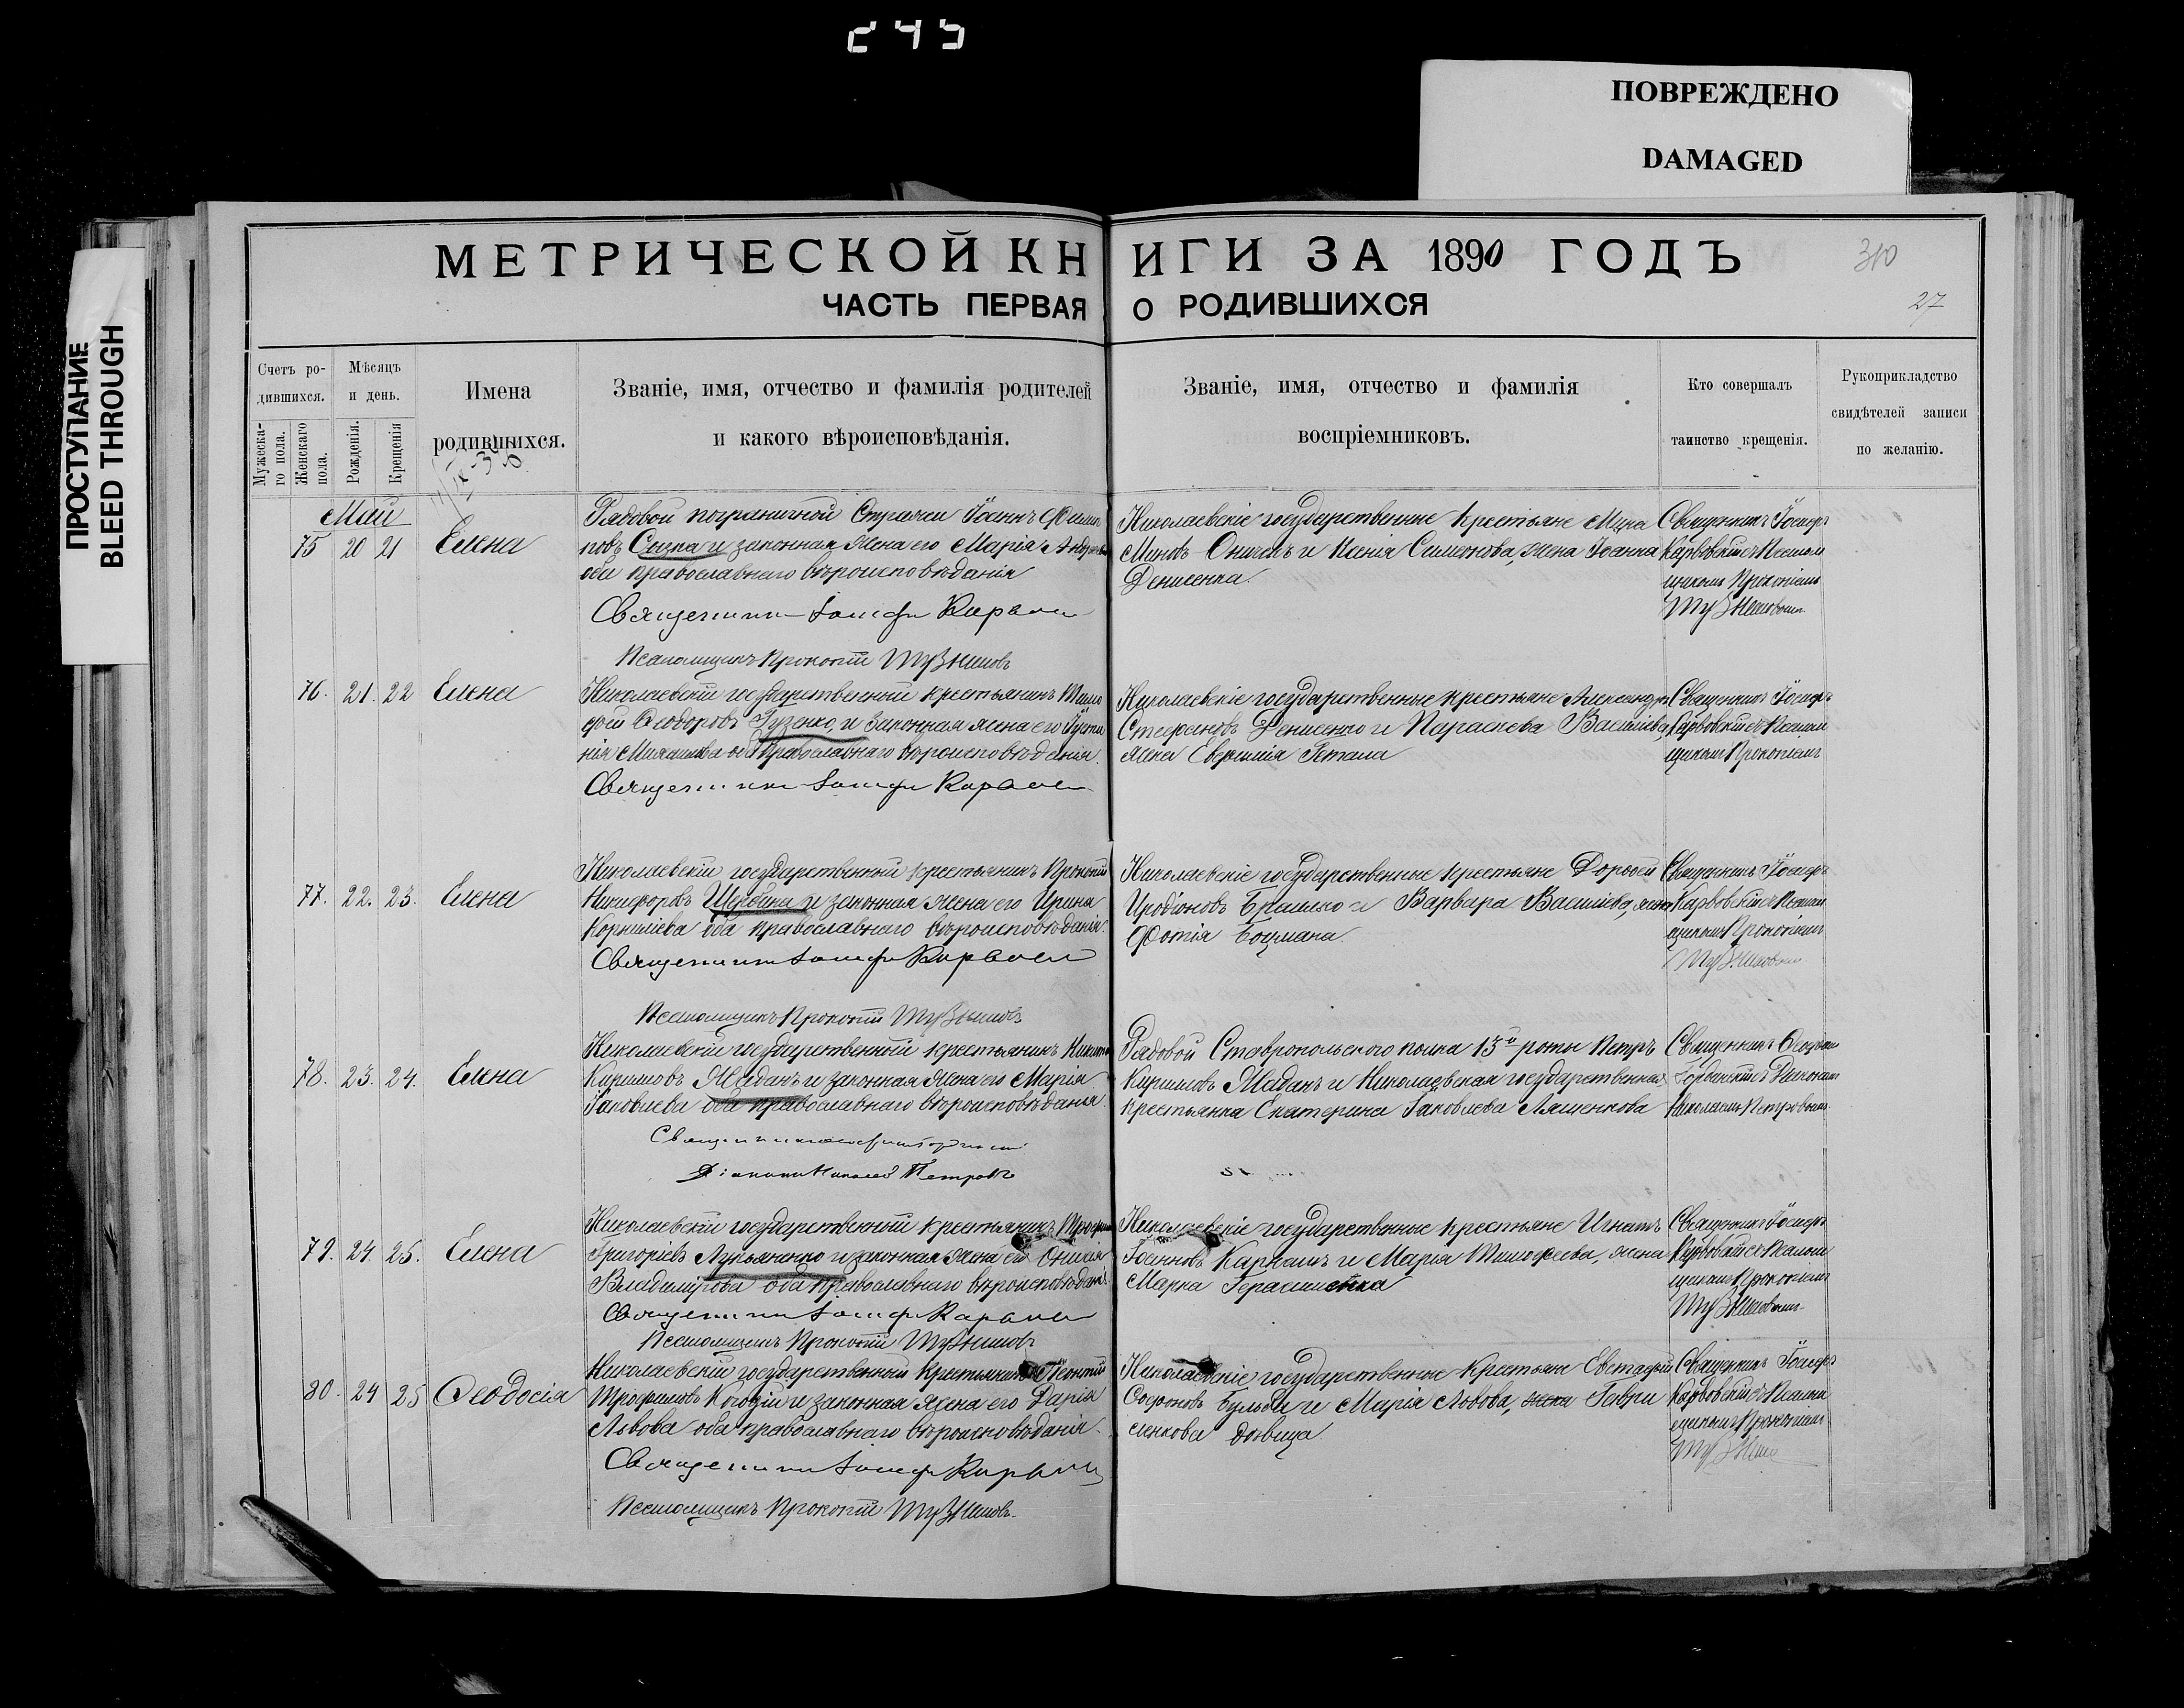 245
ПОВРЕЖДЕНО
DAMAGED
ПРОСТУПАНИЕ
BLEED THROUGH
МЕТРИЧЕСКОЙ КНИГИ ЗА 1890 ГОДЪ
310
ЧАСТЬ ПЕРВАЯ О РОДИВШИХСЯ
27
Счетъ родившихся.
Мужескаго пола.
Женскаго пола.
Мѣсяцъ и день.
Рожденія.
Крещенія
Имена родившихся.
Званіе, имя, отчество и фамилія родителей
и какого вѣроисповѣданія.
Званіе, имя, отчество и фамилія
воспріемниковъ.
Кто совершалъ
таинство крещенія.
Рукоприкладство
свидѣтелей записи
по желанію.
Май
75 20 21 Елена
Рядовой пограничной Стражи Іоаннъ Филип
повъ и законная жена его Марія
оба православнаго вѣроисповѣданія
Священникъ Іосифъ
Псаломщикъ Прокопій
Николаевскіе государственные крестьяне Мина
Миновъ и Ксенія Симеонова, жена Іоанна
Денисенка.
Священникъ Іосифъ
Карвовскій съ Псалом
щикомъ Прокопіемъ
76. 21. 22 Елена
Николаевскій государственный крестьянинъ Тимо
фей Ѳеодоровъ Гузенко, и законная жена его Іусти
нія оба Православнаго вѣроисповѣданія.
Священникъ Іосифъ
Николаевскіе государственные крестьяне Александръ
Стефановъ Денисенко и Параскева Василіева,
жена Евфимія Гетмана
Священникъ Іосифъ
Карвовскій съ Псалом
щикомъ Прокопіемъ
77. 22. 23. Елена
Николаевскій государственный крестьянинъ Прокопій
Никифоровъ Щербина и законная жена его Ирина
Корниліева оба православнаго вѣроисповѣданія.
Священникъ Іосифъ
Псаломщикъ Прокопій
Николаевскіе государственные крестьяне Дороѳей
Иродіоновъ и Варвара Василіева, жена
Фотія Боцмана.
Священникъ Іосифъ
Карвовскій съ Псалом
щикомъ Прокопіемъ
78. 23. 24. Елена
Николаевскій государственный крестьянинъ Никита
Кирилловъ Жаданъ и законная жена его Марія
Іаковлева оба православнаго вѣроисповѣданія.
Діаконъ Николай Петровъ
Рядовой Ставропольскаго полка 13й роты Петръ
Кирилловъ Жаданъ и Николаевская государственная
крестьянка Екатерина Іаковлева Лященкова
Священникъ
съ Діакономъ
Николаемъ Петровымъ
79. 24. 25. Елена
Николаевскій государственный крестьянинъ
Григоріевъ Лукьяненко и законная жена его
Владимірова оба православнаго вѣроисповѣданія.
Священникъ Іосифъ
Псаломщикъ Прокопій
Николаевскіе государственные крестьяне Игнатъ
Іоанновъ и Марія Тимофеева, жена
Марка Герасименка
Священникъ Іосифъ
Карвовскій съ Псалом
щикомъ Прокопіемъ
80. 24 25 Ѳеодосія
Николаевскій государственный крестьянинъ Леонтій
Трофимовъ и законная жена его Дарія
Львова оба православнаго вѣроисповѣданія.
Священникъ Іосифъ
Псаломщикъ Прокопій
Николаевскіе государственные крестьяне Евстафій
Софоновъ и Марія Львова, Гаври
ленкова дѣвица
Священникъ Іосифъ
Карвовскій съ Псалом
щикомъ Прокопіемъ